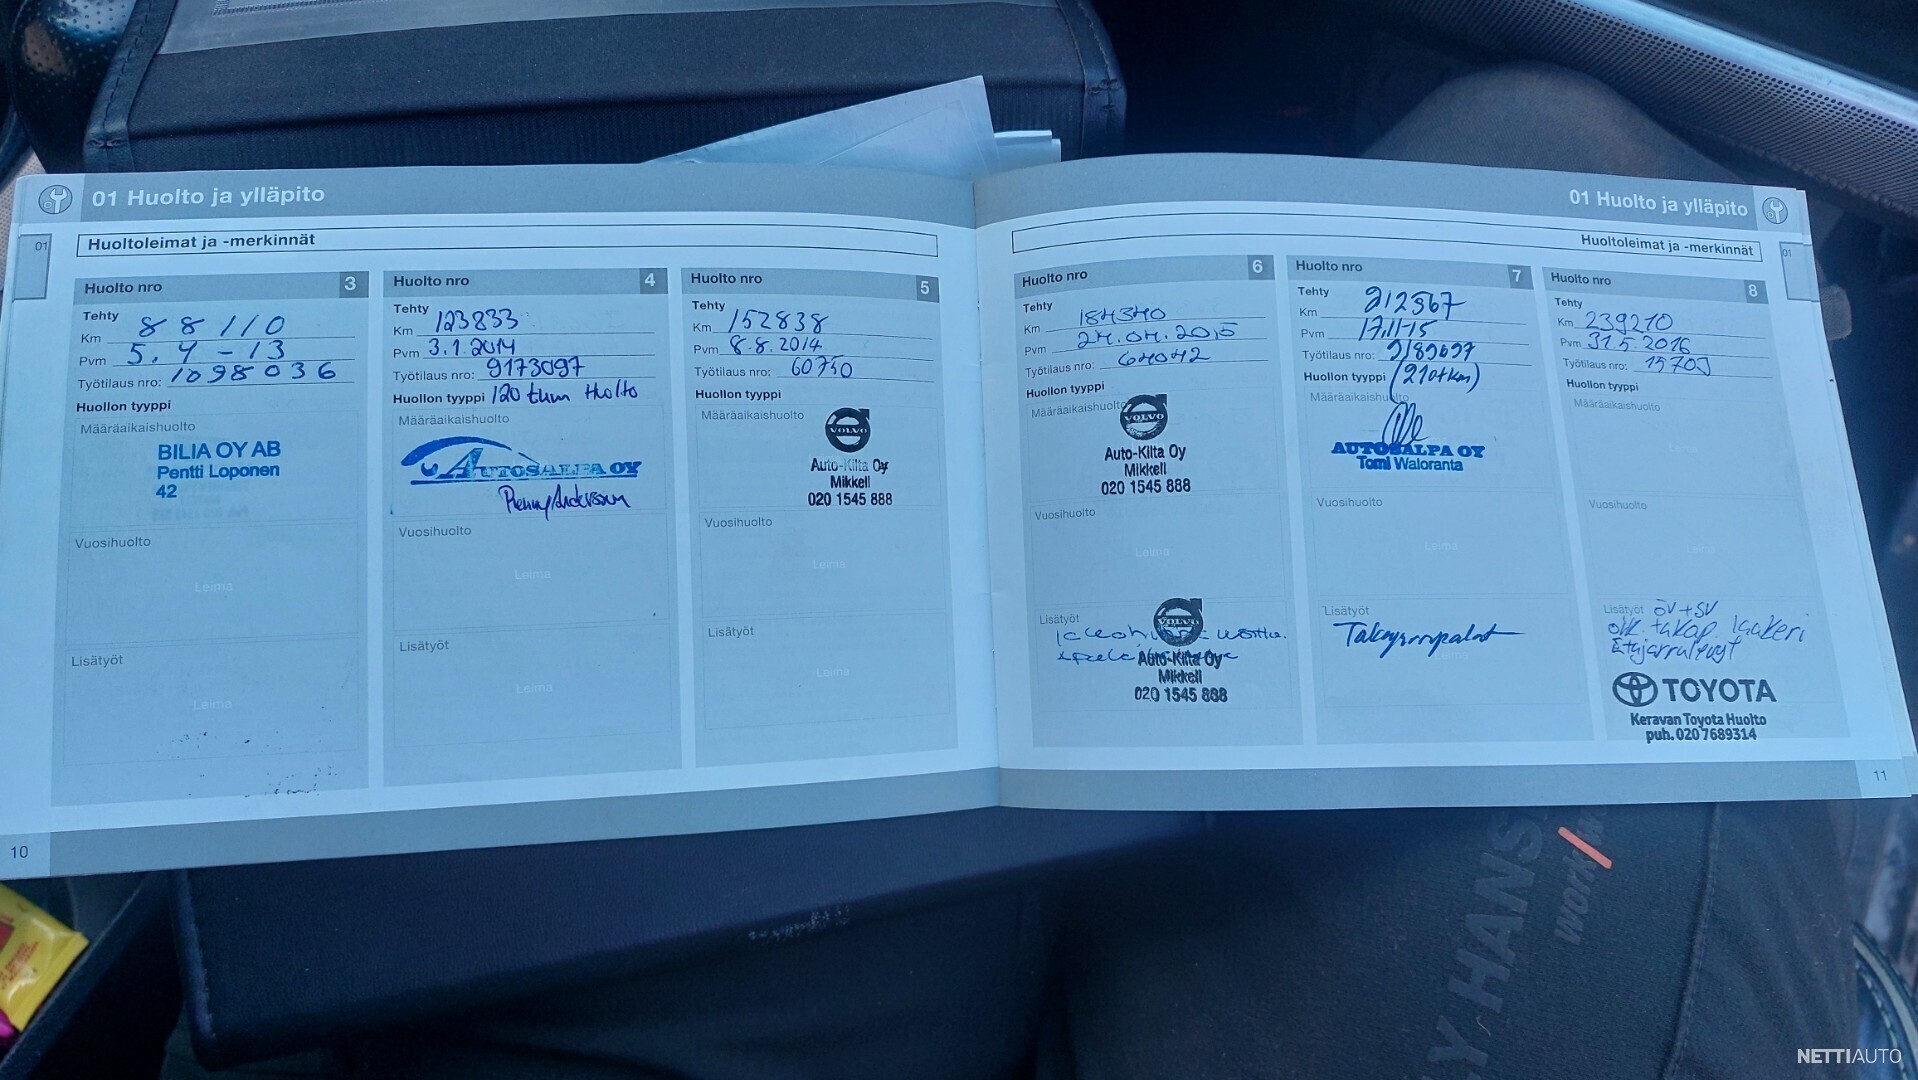 01 Huolto ja ylläpito
01
Huoltoleimat ja -merkinnät
Huolto nro 3
Tehty
Km 88110
Pvm 5.4-13
Työtilaus nro: 1098036
Huollon tyyppi
Määräaikaishuolto
BILIA OY AB
Pentti Loponen
42
Vuosihuolto
Leima
Lisätyöt
Leima
Huolto nro 4
Tehty
Km 123833
Pvm 3.1.2014
Työtilaus nro: 9173097
Huollon tyyppi 120 tkm Huolto
Määräaikaishuolto
AUTOSALPA OY
Vuosihuolto
Leima
Lisätyöt
Leima
Huolto nro 5
Tehty
Km 152838
Pvm 8.8.2014
Työtilaus nro: 60750
Huollon tyyppi
Määräaikaishuolto
VOLVO
Auto-Kilta Oy
Mikkeli
020 1545 888
Vuosihuolto
Leima
Lisätyöt
Leima
10
01 Huolto ja ylläpito
Huoltoleimat ja -merkinnät
01
Huolto nro 6
Tehty
Km 184340
Pvm 24.04.2015
Työtilaus nro: 64042
Huollon tyyppi
Määräaikaishuolto
VOLVO
Auto-Kilta Oy
Mikkeli
020 1545 888
Vuosihuolto
Leima
Lisätyöt
VOLVO
Auto-Kilta Oy
Mikkeli
020 1545 888
Huolto nro 7
Tehty
Km 212367
Pvm 17.11-15
Työtilaus nro: 9189697
Huollon tyyppi (210tkm)
Määräaikaishuolto
AUTOSALPA OY
Tomi Waloranta
Vuosihuolto
Leima
Lisätyöt
Huolto nro 8
Tehty
Km 239210
Pvm 31.5.2016
Työtilaus nro: 15703
Huollon tyyppi
Määräaikaishuolto
Vuosihuolto
Leima
Lisätyöt ÖV+SV
takap. laakeri
Etujarrulevyt
TOYOTA
Keravan Toyota Huolto
puh. 020 7689314
11
Y HANS
work
NETTIAUTO